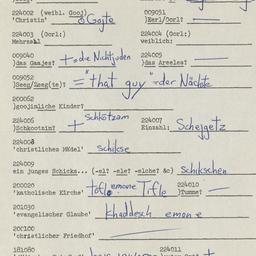 224002 (weibl. Goj)
'Christin' a Gojte
009051
)Kerl/Dorl: —
224003 (Dorl:)
Mehrzahl —
224004 (Dorl:)
weiblich: —
009040
)das Gaajes: + die Nichtjuden
224005
)das Areeles: —
009052
)Seeg/Zeeg(te): = "that guy" der Nächste
200052
)goojinliche Kinder: —
224005
)Schkootzim: + schkotzam
224007
Einzahl: Schejgetz
224008
'christliches Mädel' schikse
224009
ein junges Schicks... (-el: -el: -elche: &c) Schikschen
200020
'katholische Kirche' tofle emone Tifle
224010
)Tumme: —
201030
'evangelischer Glaube' khaddesch emone
200100
'christlicher Friedhof' —
181080
224011